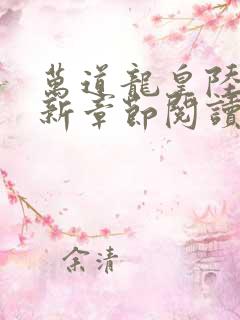 萬道龍皇陸
新章節閱讀
余清